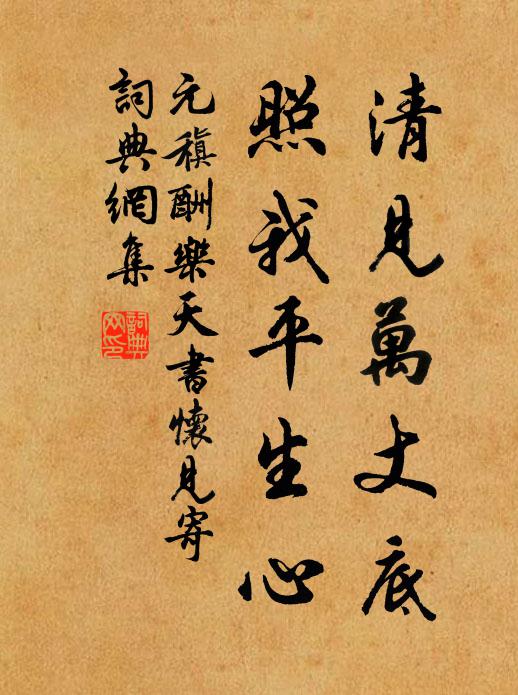 清見萬丈底
照我平生心
元稹酬樂天書懷見寄
詞典網集
詞典網印